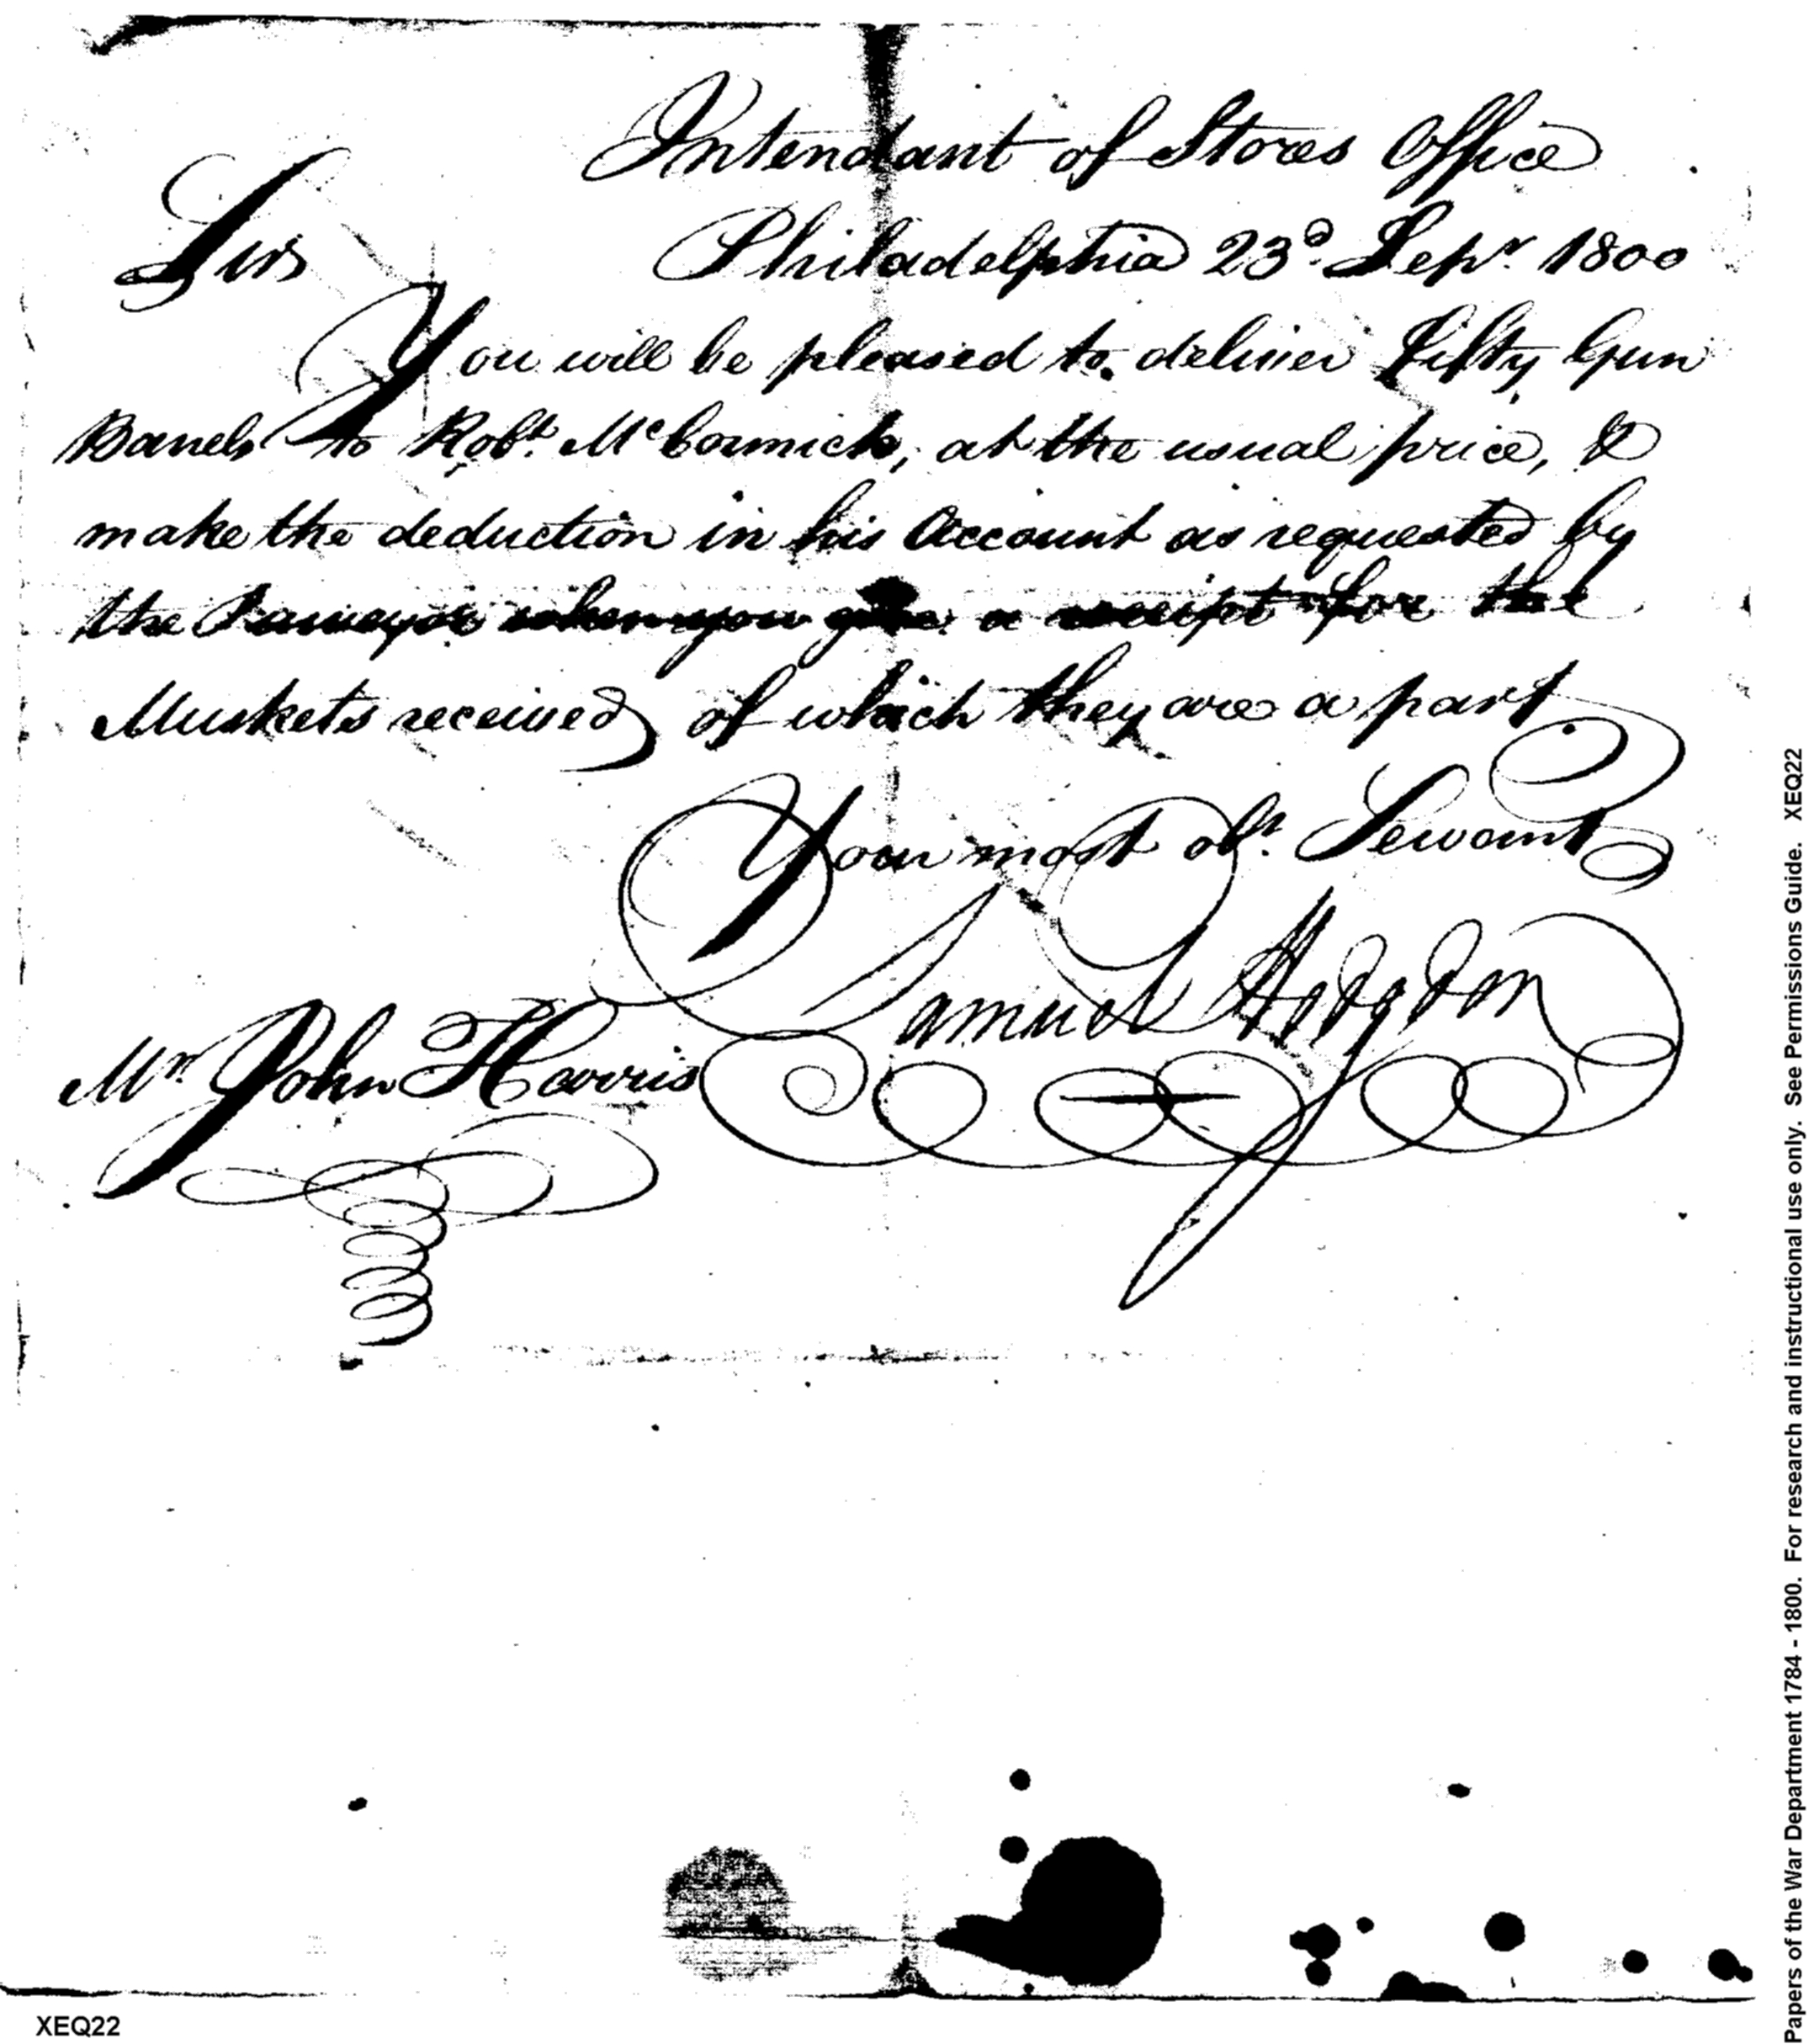 Intendant of Stores Office
Sir Philadelphia 23d. Sepr. 1800
You will be pleased to deliver Fifty Gun
Barrels to Robt. McCormick, at the usual price, &
make the deduction in his Account as requested by
the Purveyor when you give a receipt for the
Muskets received of which they are a part
Your most obt. Servant
Samuel Hodgdon
Mr. John Harris
XEQ22
Papers of the War Department 1784 - 1800. For research and instructional use only. See Permissions Guide. XEQ22